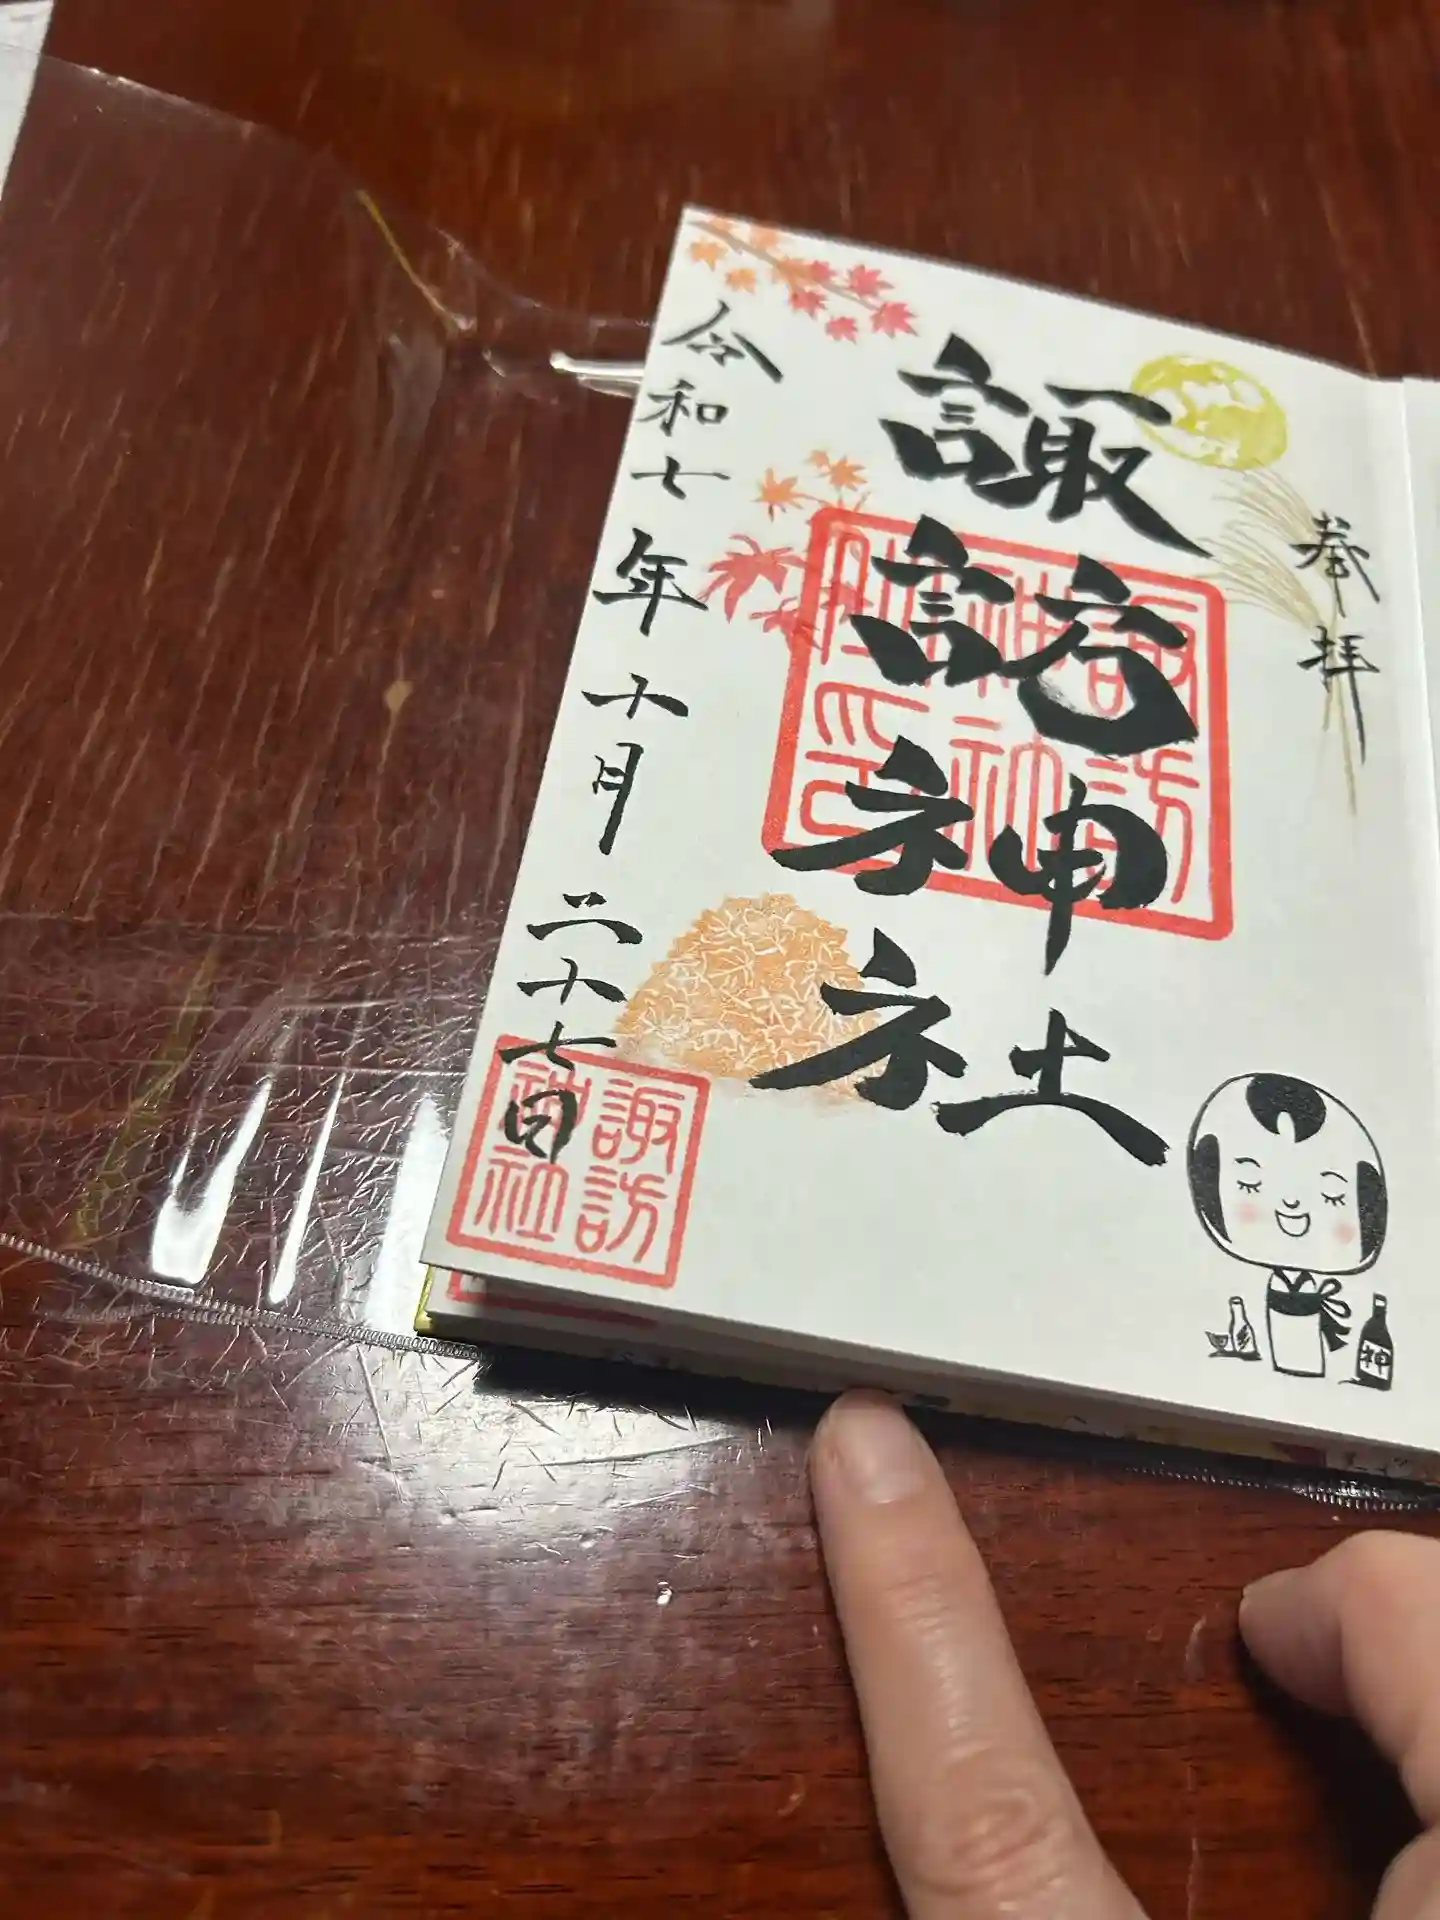 奉拝
諏訪神社
令和七年十月二十七日
諏訪
神社
諏訪
神社
神